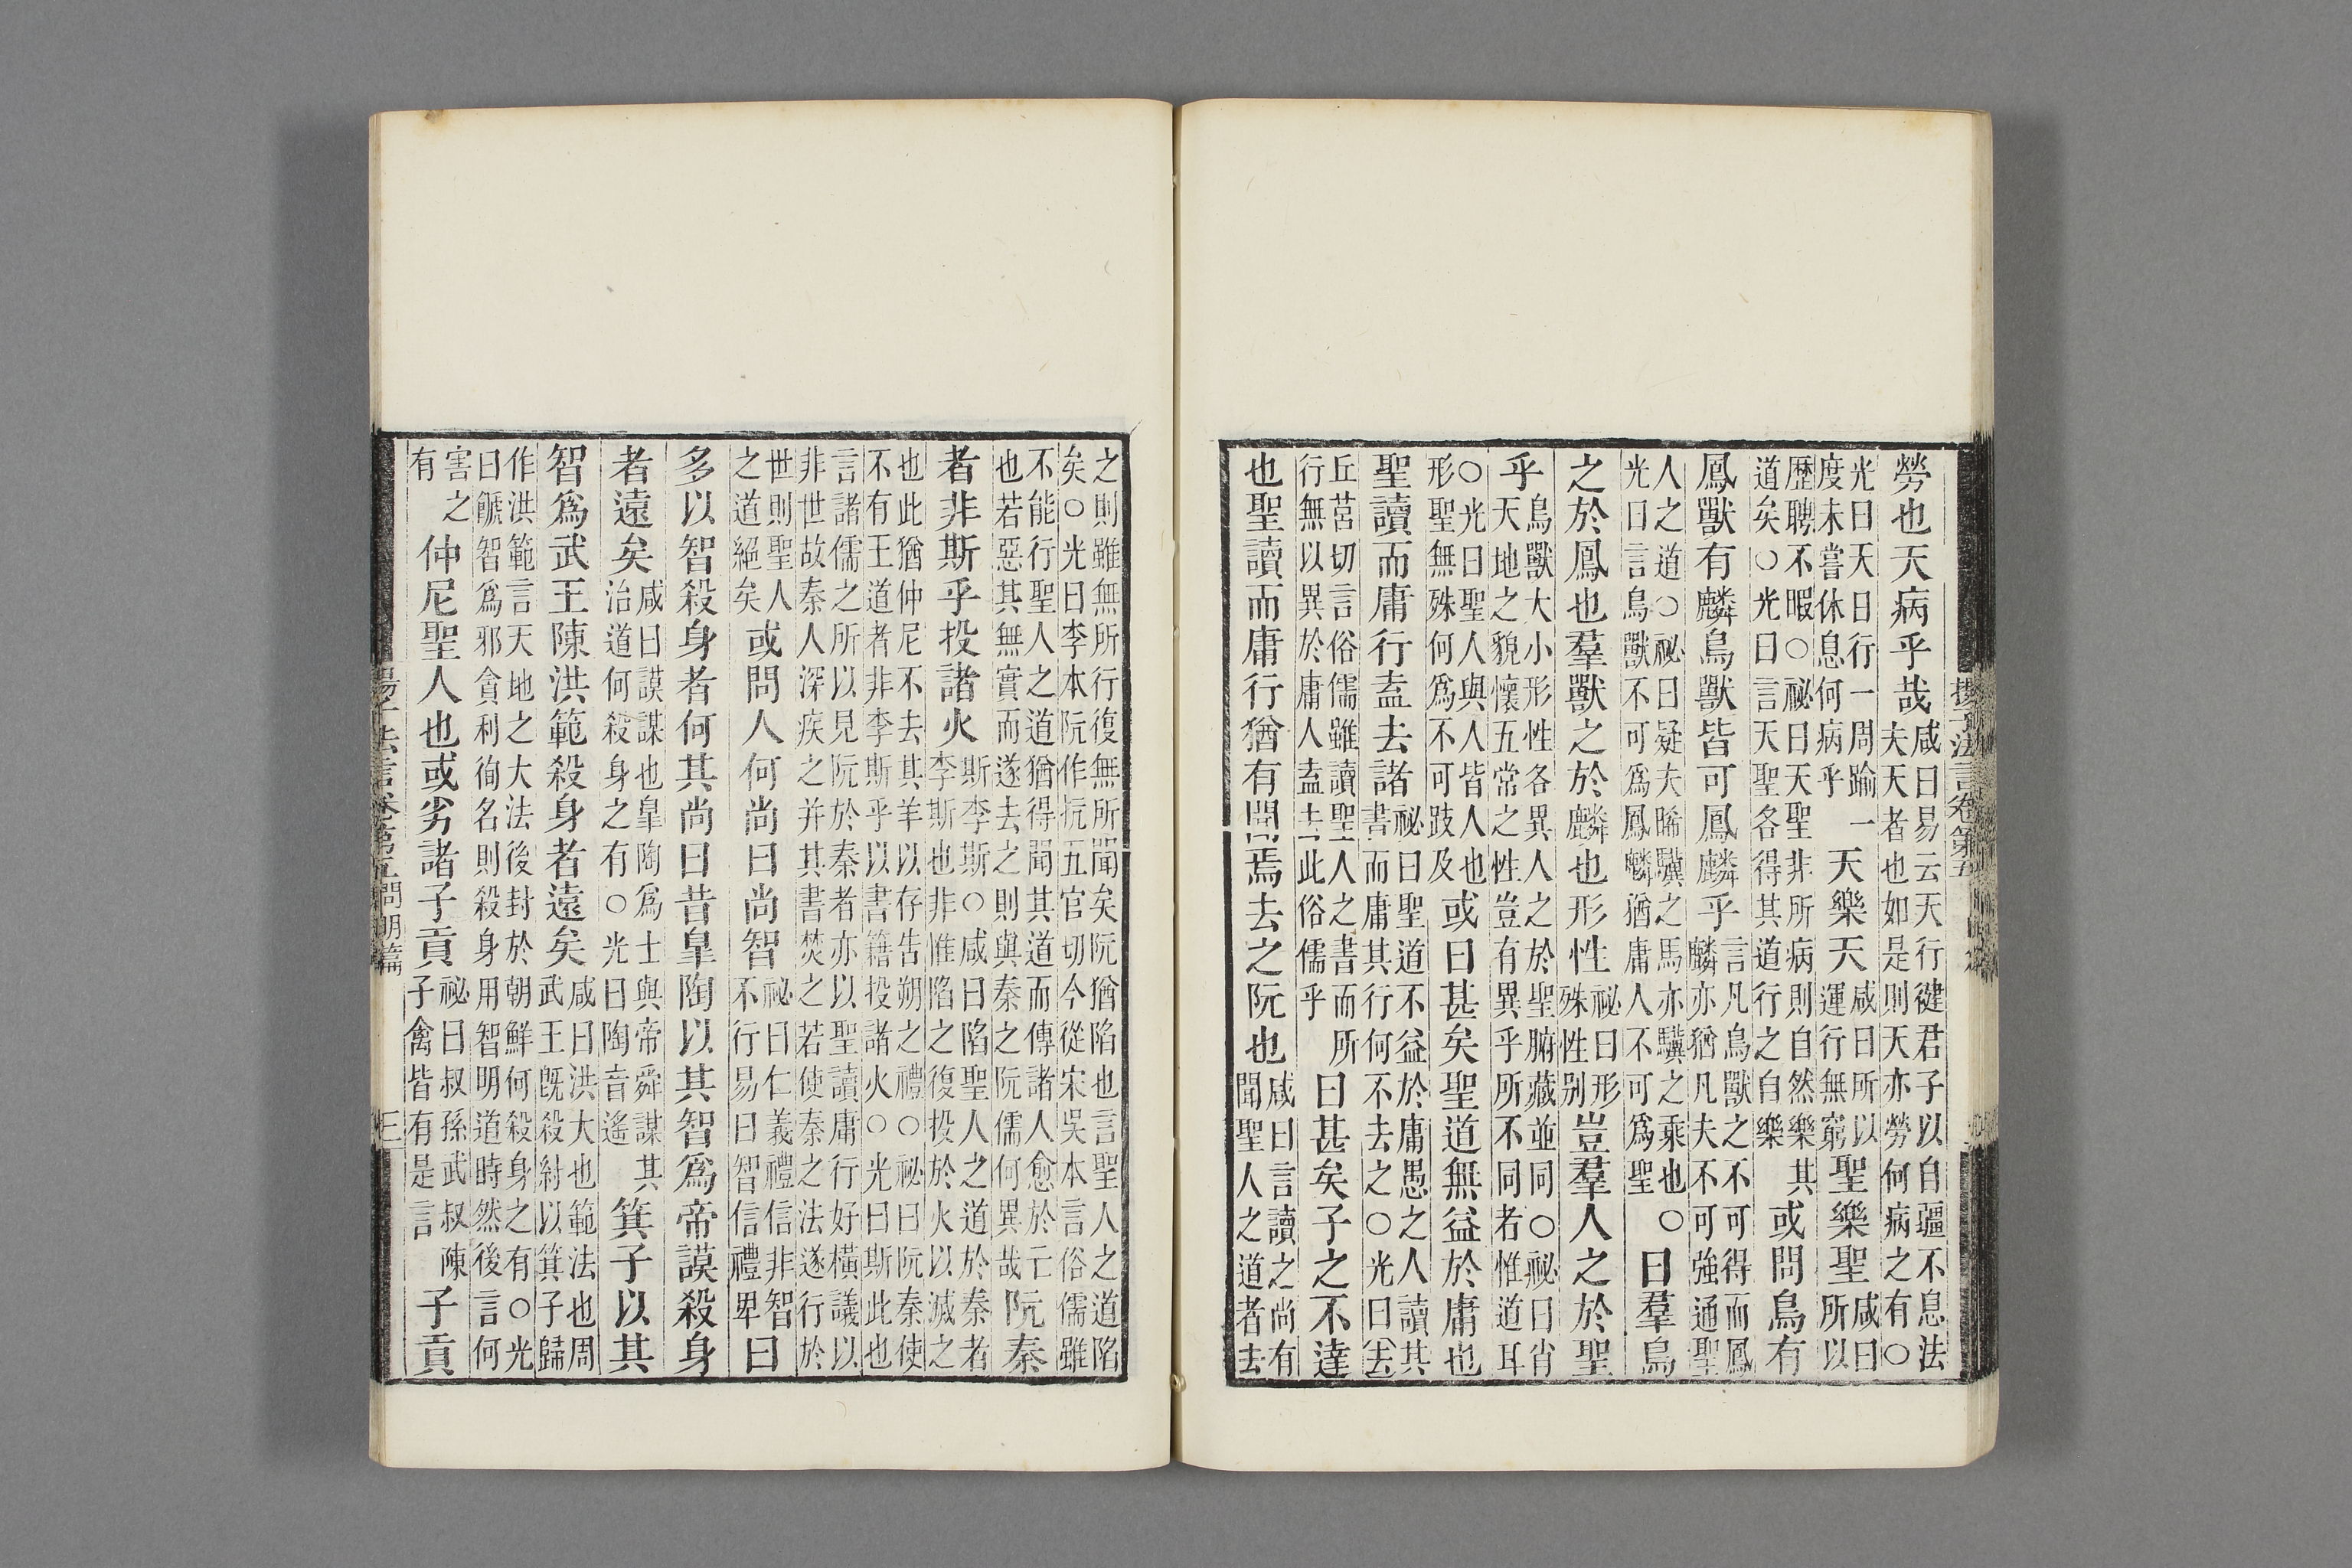 揚子法言卷第五
勞也天病乎哉咸曰易云天行健君子以自疆不息法夫天者也如是則天亦勞何病之有○
光曰天日行一周踰一度未嘗休息何病乎天樂天咸曰所以運行無窮聖樂聖咸曰所以
歷聘不暇○祕曰天聖非所病則自然樂其道矣○光曰言天聖各得其道行之自樂或問鳥有
鳳獸有麟鳥獸皆可鳳麟乎言凡鳥獸之不可得而鳳麟亦猶凡夫不可強通聖
人之道○祕曰疑夫晞驥之馬亦驥之乘也○光曰言鳥獸不可爲鳳麟猶庸人不可爲聖曰羣鳥
之於鳳也羣獸之於麟也形性祕曰形殊性别豈羣人之於聖
乎鳥獸大小形性各異人之於聖腑藏並同○祕曰肖天地之貌懷五常之性豈有異乎所不同者惟道耳
○光曰聖人與人皆人也形聖無殊何爲不可跂及或曰甚矣聖道無益於庸也
聖讀而庸行盍去諸祕曰聖道不益於庸愚之人讀其書而庸其行何不去之○光曰去
丘莒切言俗儒雖讀聖人之書而所行無以異於庸人盍去此俗儒乎曰甚矣子之不達
也聖讀而庸行猶有聞焉去之阬也咸曰言讀之尚有聞聖人之道者去
之則雖無所行復無所聞矣阬猶陷也言聖人之道陷矣○光曰李本阬作抏五官切今從宋吳本言俗儒雖
不能行聖人之道猶得聞其道而傳諸人愈於亡也若惡其無實而遂去之則與秦之阬儒何異哉阬秦
者非斯乎投諸火斯李斯○咸曰陷聖人之道於秦者李斯也非惟陷之復投於火以滅之
也此猶仲尼不去其羊以存告朔之禮○祕曰阬秦使不有王道者非李斯乎以書籍投諸火○光曰斯此也
言諸儒之所以見阬於秦者亦以聖讀庸行好橫議以非世故秦人深疾之并其書焚之若使秦之法遂行於
世則聖人之道絕矣或問人何尚曰尚智祕曰仁義禮信非智不行易曰智信禮卑曰
多以智殺身者何其尚曰昔皐陶以其智爲帝謨殺身
者遠矣咸曰謨謀也皐陶爲士與帝舜謀其治道何殺身之有○光曰陶音遙箕子以其
智爲武王陳洪範殺身者遠矣咸曰洪大也範法也周武王既殺紂以箕子歸
作洪範言天地之大法後封於朝鮮何殺身之有○光曰饜智爲邪貪利徇名則殺身用智明道時然後言何
害之有仲尼聖人也或劣諸子貢祕曰叔孫武叔陳子禽皆有是言子貢
揚子法言卷第五 問明篇 三